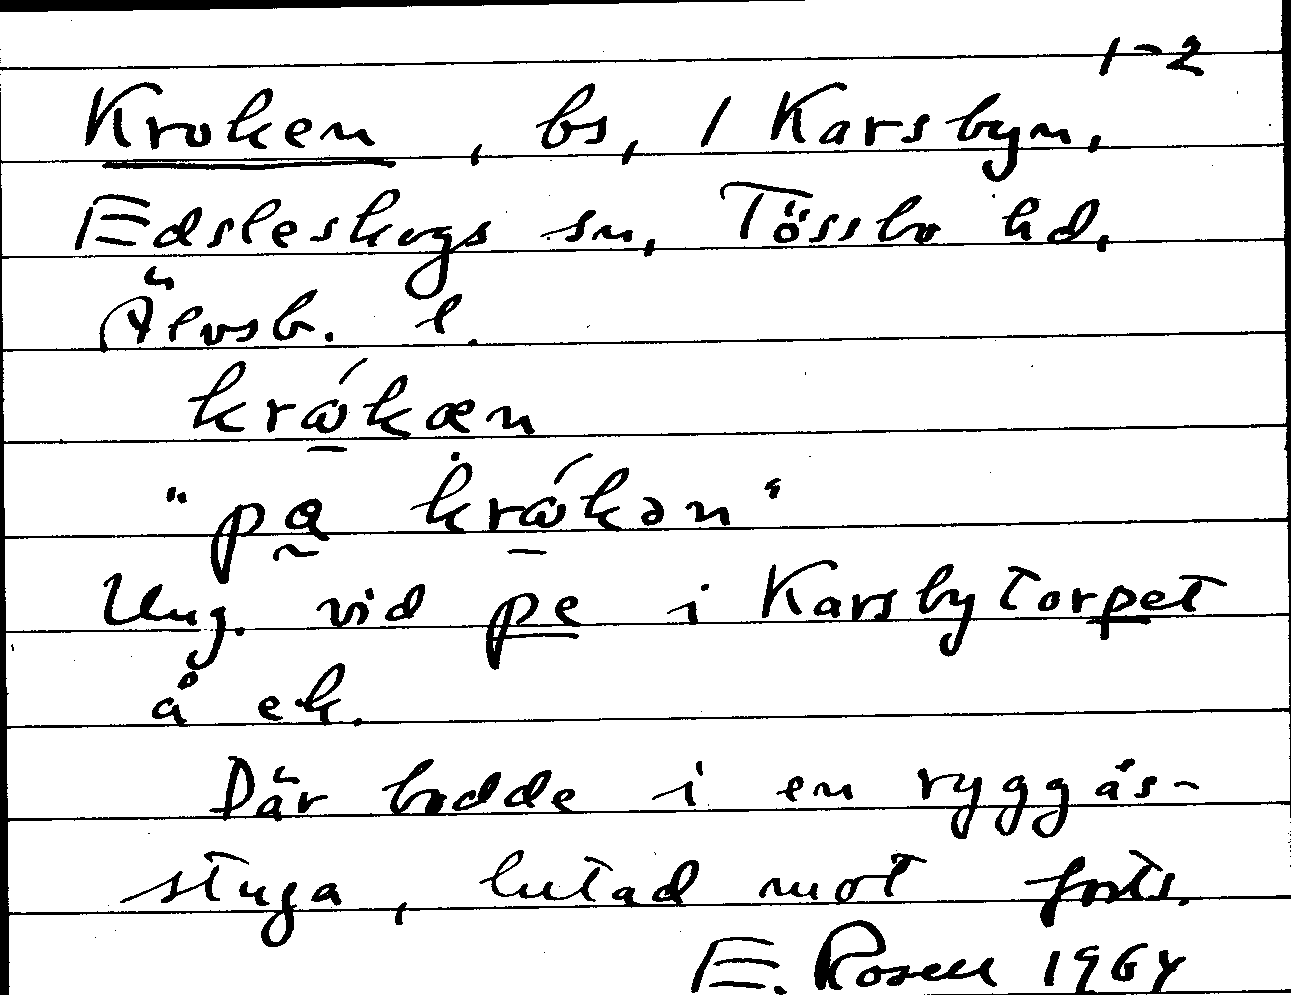 1-2
Kroken, bs, / Karsbyn,
Edsleskogs sn, Tössbo hd,
Älvsb. l.
krώkæn
"pa krώkən"
Ung. vid pe i Karsbytorpet
å ek.
Där bodde i en ryggås-
stuga, lutad mot forts.
E. Rosell 1964